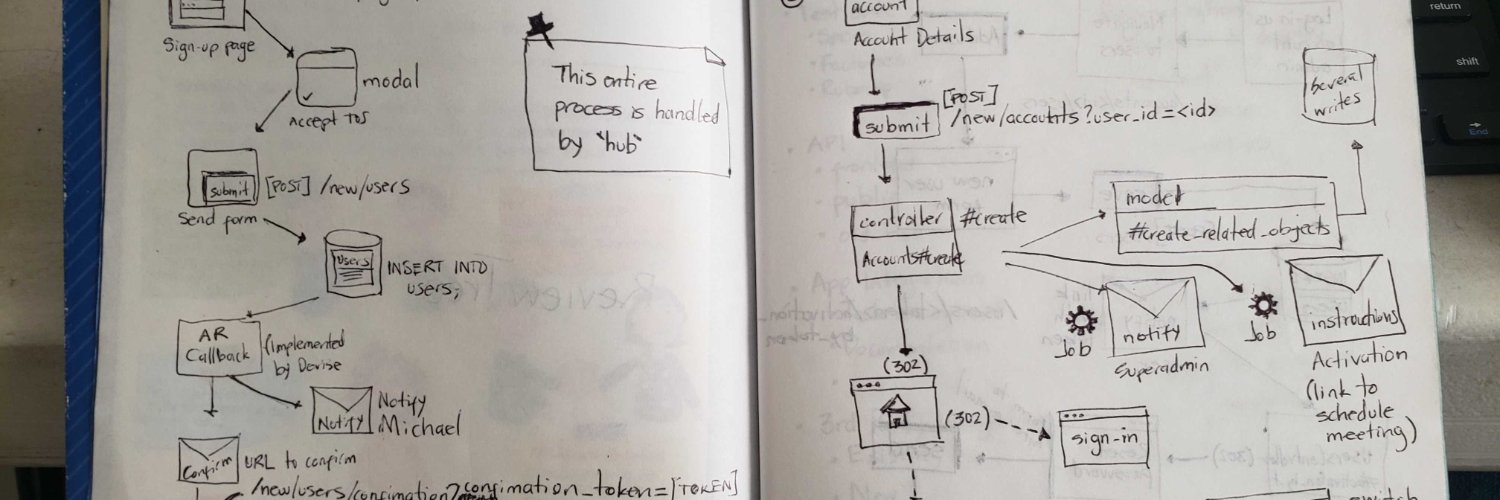 Sign-up page
modal
Accept ToS
submit
[POST] /new/users
Send form
users
INSERT INTO
users;
AR
Callback
(Implemented
by Devise
Notify
Notify
Michael
Confirm
URL to confirm
/new/users/confimation?confimation_token=[TOKEN]
This entire
process is handled
by "hub"
account
Account Details
submit
[POST]
/new/accounts?user_id=<id>
controller
#create
Accounts#create
model
#create_related_objects
several
writes
Job
notify
Superadmin
Job
instructions
Activation
(link to
schedule
meeting)
(302)
(302)
sign-in
return
shift
End